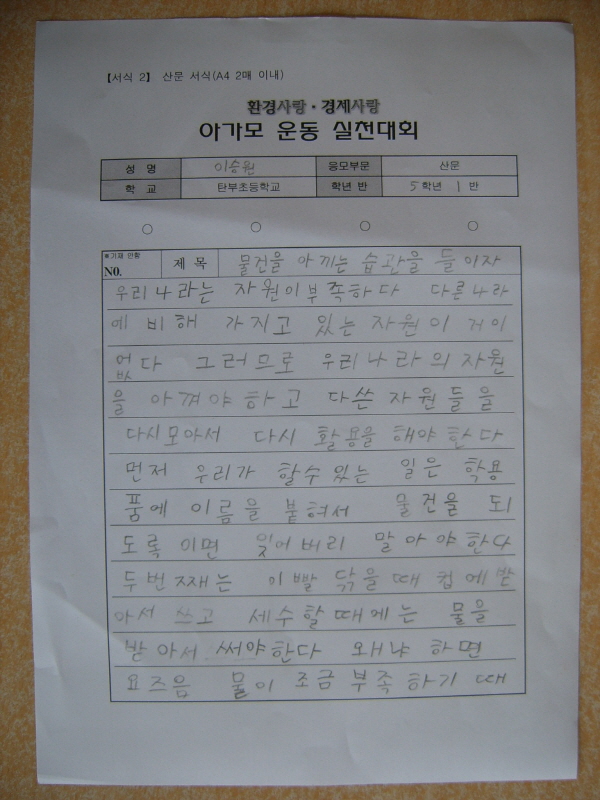 【서식 2】 산문 서식(A4 2매 이내)
환경사랑·경제사랑
아가모 운동 실천대회
성 명 이승원 응모부문 산문
학 교 탄부초등학교 학년 반 5학년 1반
*기재 안함
NO. 제 목 물건을 아끼는 습관을 들이자
우리나라는 자원이 부족하다 다른나라
에 비해 가지고 있는 자원이 거이
없다 그러므로 우리나라의 자원
을 아껴야하고 다쓴 자원들을
다시모아서 다시 활용을 해야 한다
먼저 우리가 할수있는 일은 학용
품에 이름을 붙혀서 물건을 되
도록이면 잊어버리 말아야한다
두번째는 이빨 닦을때 컵에받
아서 쓰고 세수할때에는 물을
받아서 써야한다 왜냐 하면
요즈음 물이 조금 부족하기 때